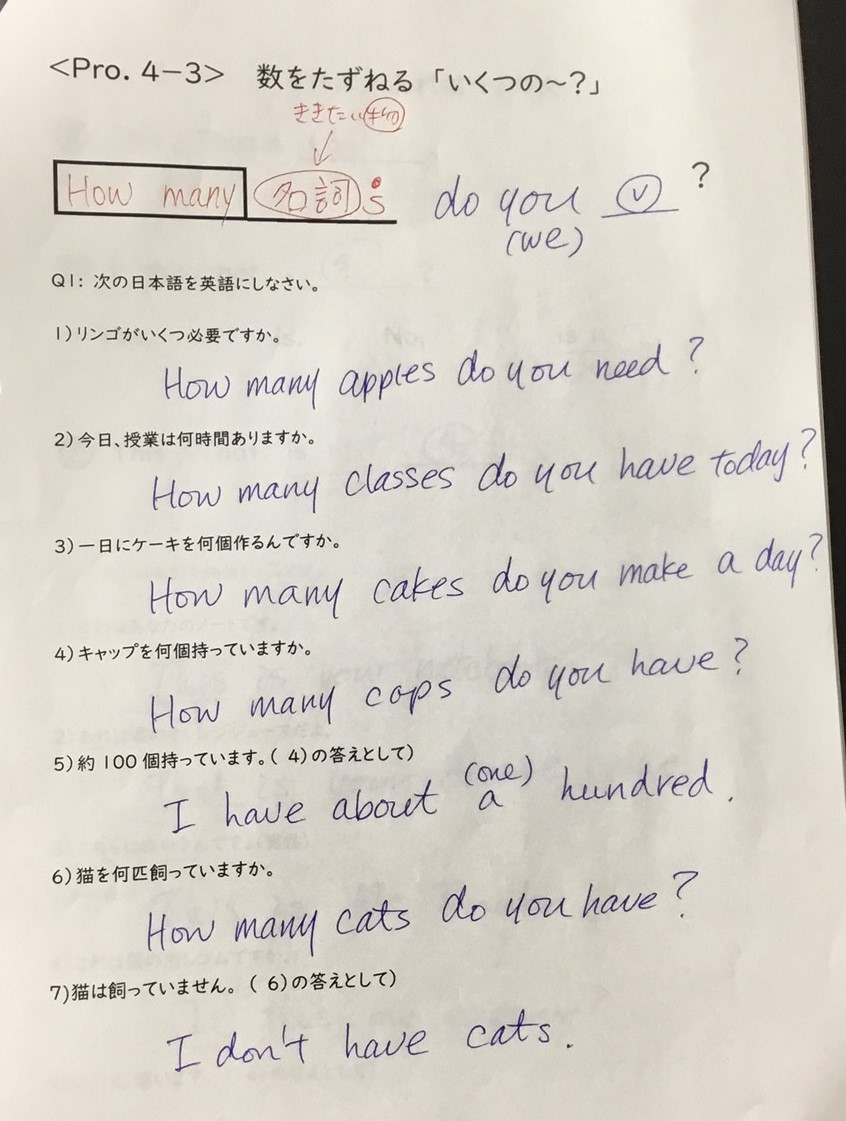 <Pro. 4-3> 数をたずねる「いくつの～?」
ききたい物
How many 名詞s do you v ?
(we)
Q1: 次の日本語を英語にしなさい。
1)リンゴがいくつ必要ですか。
How many apples do you need?
2)今日、授業は何時間ありますか。
How many classes do you have today?
3)一日にケーキを何個作るんですか。
How many cakes do you make a day?
4)キャップを何個持っていますか。
How many caps do you have?
5)約100個持っています。( 4)の答えとして)
(one)
I have about a hundred.
6)猫を何匹飼っていますか。
How many cats do you have?
7)猫は飼っていません。( 6)の答えとして)
I don't have cats.